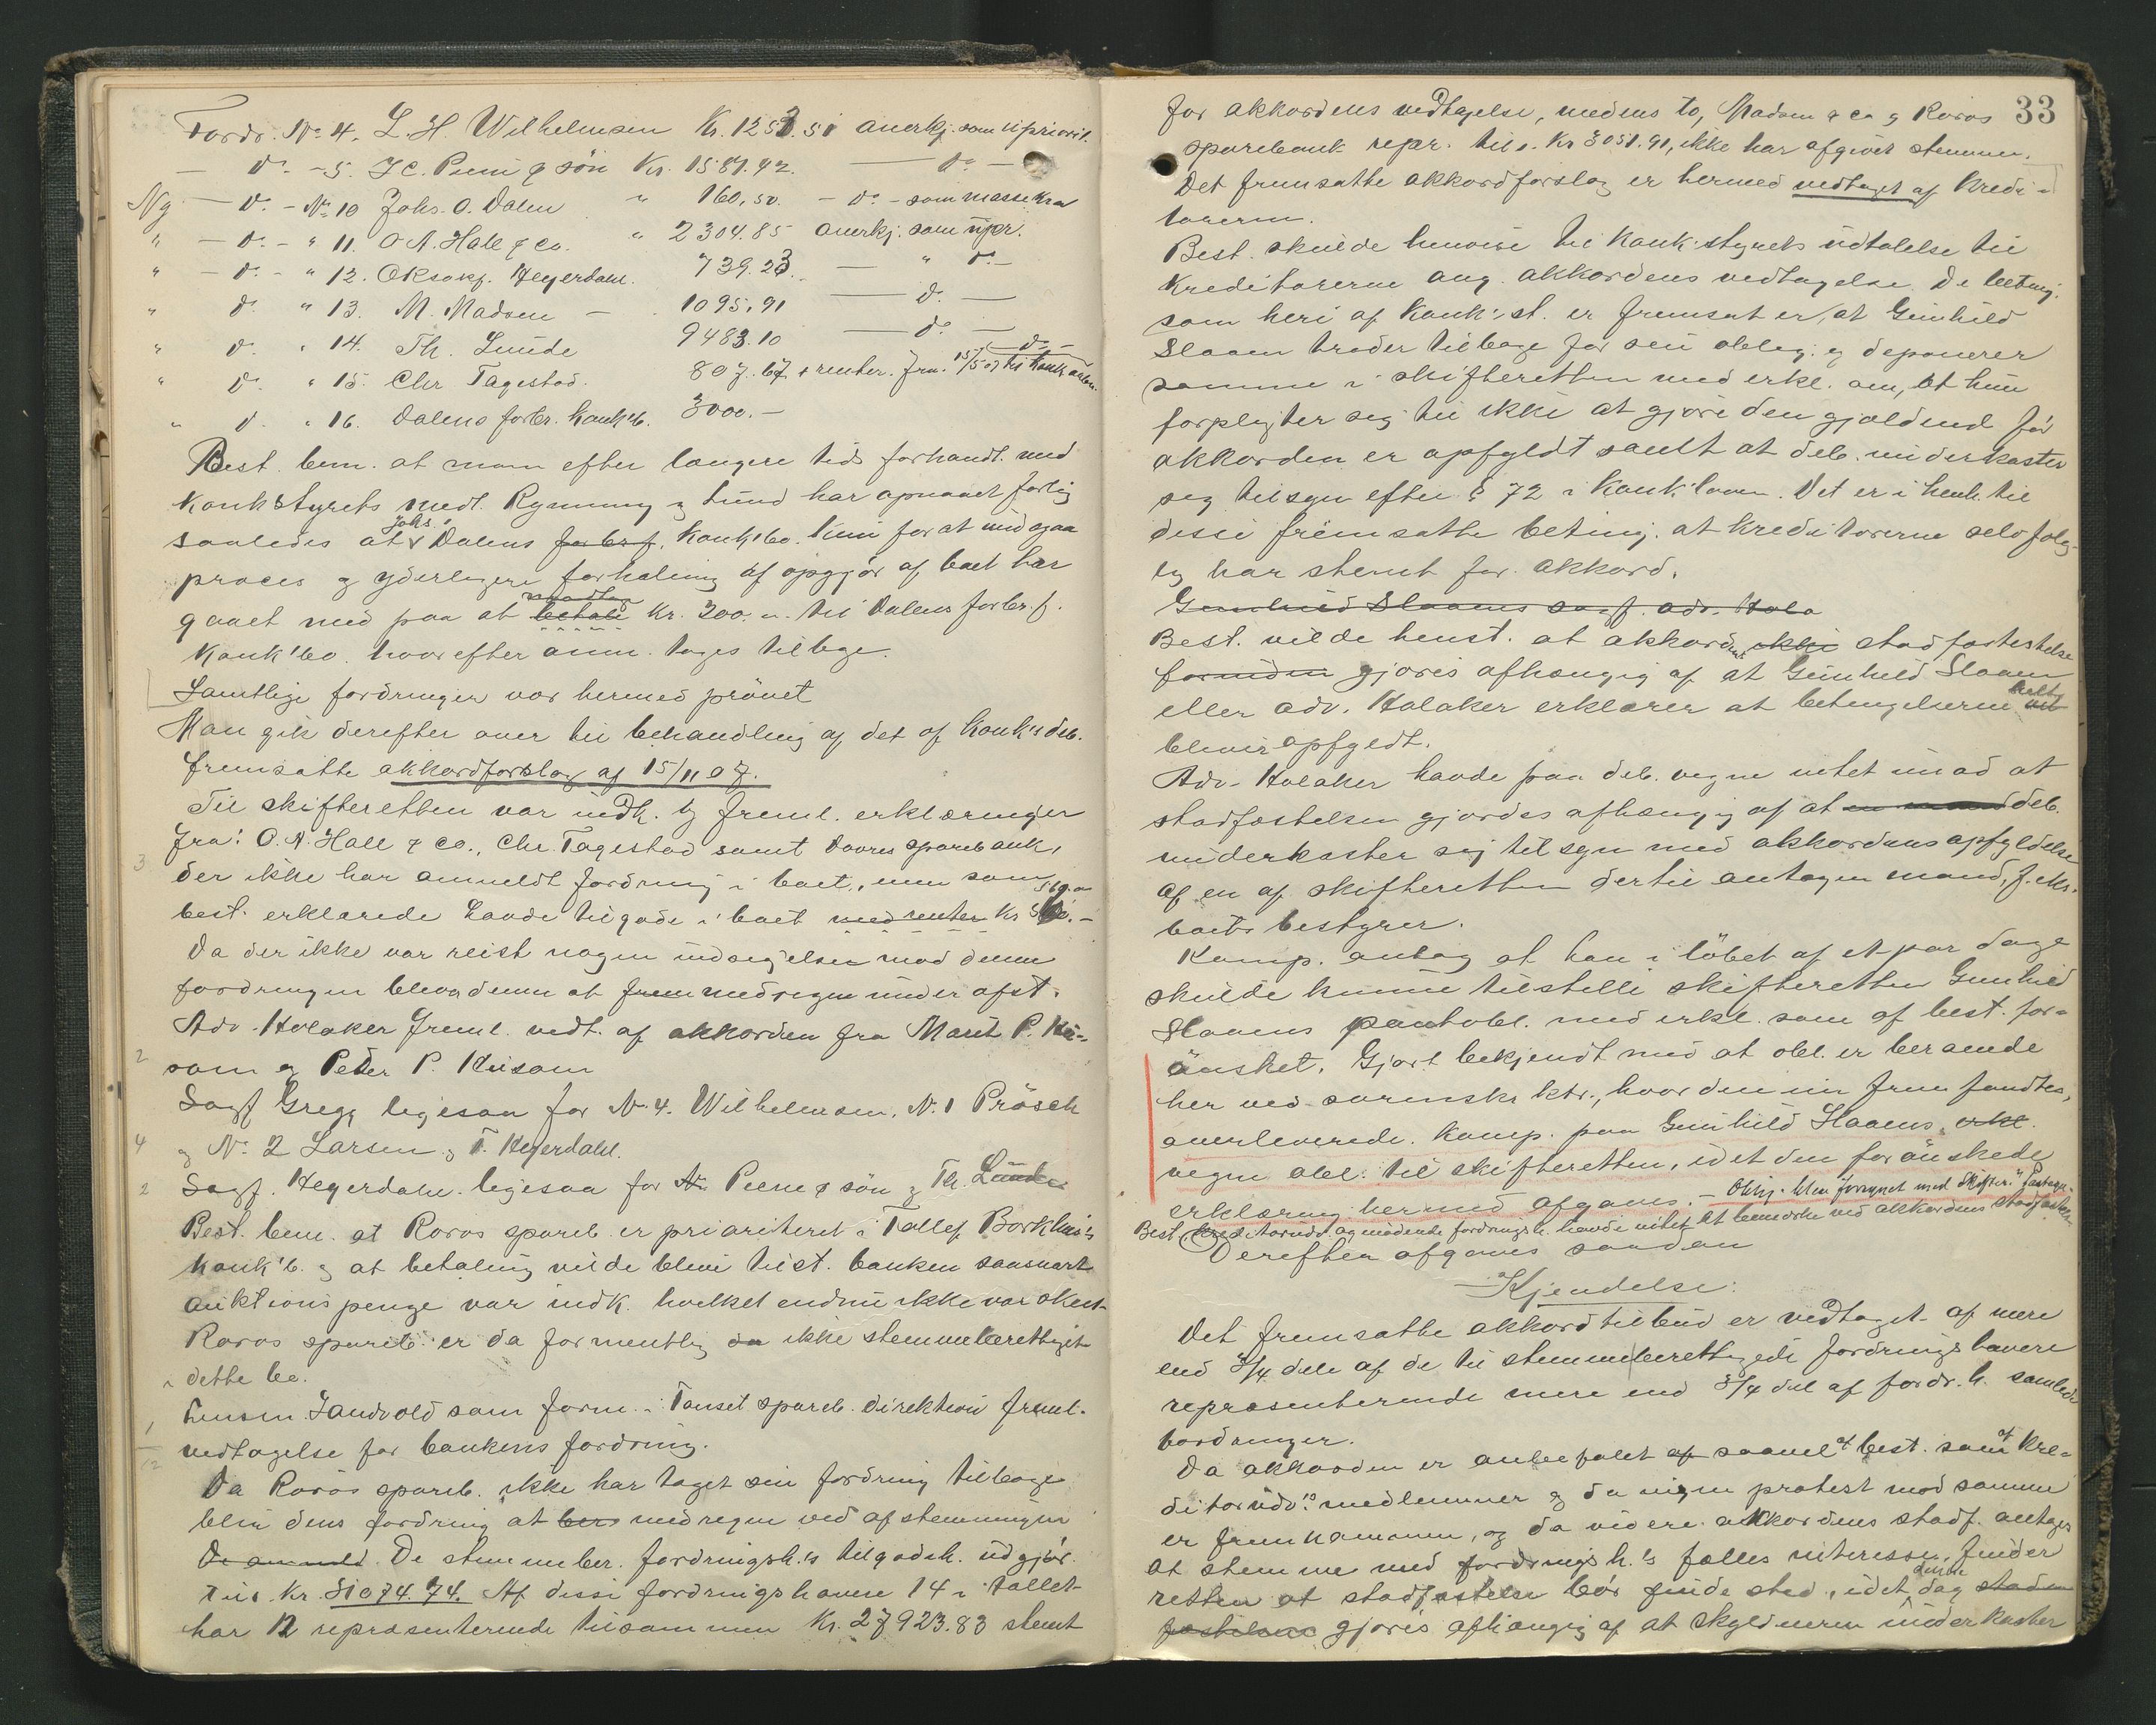 Fordr. No 4. L. H. Wilhelmsen Kr. 1253.51 anerkj. som upriorit.
— do - 5. J C. Piene & søn Kr. 1587.42. — do —
Ng — do - No 10 Johs. O. Dalen " 160,50. - do - som massekrav
" — do - " 11. O A. Hall & Co. " 2304.85 anerkj. som upr.
" — do - " 12. ORsakf. Hegerdahl. 739.23. — " do —
" do " 13. M. Madsen — 1095.91 — do —
" do " 14. Th. Lunde 9483.10 — do —
" do " 15. Chr Tagestad. 807.67 + renter fra 15/5 07 til konk aabn. do -
" do " 16. Dalens forbr. konk'b. 3000.-
Best. bem. at man efter længere tids forhandl. med
konkstyrets medl. Rymning og Lund har opnaaet forlig
saaledes at Johs. Dalens forbr.f. konk'bo. kun for at undgaa
proces og yderligere forhaling af opgjør af boet har
gaaet med paa at betale modtage Kr. 300.- til Dalens forbr.f.
konk'bo. hvorefter anm. tages tilbage.
Samtlige fordringer var hermed prøvet
Man gik derefter over til behandling af det af konk's deb.
fremsatte akkordforslag af 15/11 07.
Til skifteretten var indk. og freml. erklæringer
3 fra: O. A. Hall & Co., Chr. Tagestad samt Vaares sparebank,
der ikke har anmeldt fordring i boet, men som
best. erklærede havde tilgode i boet med renter Kr
Da der ikke var reist nogen indsigelse mod denne
fordringen blev denne at frem medregne under afst.
Adv. Holaker freml. vedt. af akkorden fra Marit P. Kui-
2 som og Peder P. Kuisom
Sagf Gregg ligesaa for No. 4. Wilhelmsen, No. 1 Prøsch
4 og No 2 Larsen og T. Hegerdahl.
2 Sagf. Hegerdahl. ligesaa for No Piene & søn og Th. Lunde
Best. bem. at Røros spareb. er prioriteret i Tollef Borkhus's
konk'b. og at betaling vilde blive tilst. banken saasnart
auktionspenge var indk. hvilket endnu ikke var skeet
Røros spareb. er da formentlig da ikke stemmeberettiget
i dette bo.
1 Lensm. Sandvold som form. i Tønset spareb. direktion freml.
12 vedtagelse for bankens fordring.
Da Røros spareb. ikke har taget sin fordring tilbage
blir dens fordring at ber medregne ved afstemningen
De anmeld De stemmeber. fordringsh.'s tilgodeh. udgjør
tils. Kr. 31074.74. Af disse fordringshavere 14 i tallet
har 12 repræsenterende tilsammen Kr. 27923.83 stemt
33
for akkordens vedtagelse, medens to, Madsen & co og Røros
sparebank repr. tils. Kr 3051.91, ikke har afgivet stemmer.
Det fremsatte akkordforslag er hermed vedtaget af kredi-
torerne.
Best. skulde henvise til konk.styrets udtalelse til
kreditorerne ang. akkordens vedtagelse. De beting.
som heri af konk.'st. er fremsat er, at Gunhild
Slaaen træder tilbage for sin oblig. og deponerer
samme i skifteretten med erkl. om, at hun
forpligter sig til ikke at gjøre den gjældende før
akkorden er opfyldt samt at deb. underkaster
seg tilsyn efter § 72 i konk'loven. Det er i henh. til
disse fremsatte beting. at kreditorerne selvfølg-
lig har stemt for akkord.
Gunhild Slaaens sagf. adv. Hola
Best. vilde henst. at akkordens ikke stadfæstelse
forinden gjøres afhængig af at Gunhild Slaaen
eller adv. Holaker erklærer at betingelserne vil
bliver opfyldt.
Adv. Holaker havde paa deb. vegne intet imod at
stadfæstelsen gjordes afhængig af at en mand deb.
underkaster sig tilsyn med akkordens opfyldelse
af en af skifteretten dertil antagen mand, f. eks.
boets bestyrer.
Komp. antog at han i løbet af et par dage
skulde kunne tilstille skifteretten Gunhild
Slaaens pantobl. med erkl. som af best. for-
ønsket. Gjort bekjendt med at obl. er beroende
her ved sorenskr.ktr., hvor den nu fremfandtes,
overleverede. komp. paa Gunhild Slaaens erkl.
vegne obl. til skifteretten, idet den forønskede
erklæring hermed afgaves. - Oblig. blev forsynet med skifter.
Best. kreditorudv. og mødende fordringsh. havde intet at bemærke ved akkordens stadfæstelse
Derefter afgaves saadan
Kjendelse:
Det fremsatte akkordtilbud er vedtaget af mere
end 3/4 dele af de til stemmeberettigede fordringshavere
repræsenterende mere end 3/4 del af fordr.h. samlede
fordringer.
Da akkorden er anbefalet af saavel af best. som af kre-
ditorudv.'s medlemmer og da ingen protest mod samme
er fremkommen, og da videre akkordens stadf. antages
at stemme med fordringsh.'s fælles interesse, finder
retten at stadfæstelse bør finde sted, idet denne dog stad
fæstelsen gjøres afhængig af at skyldneren underkaster